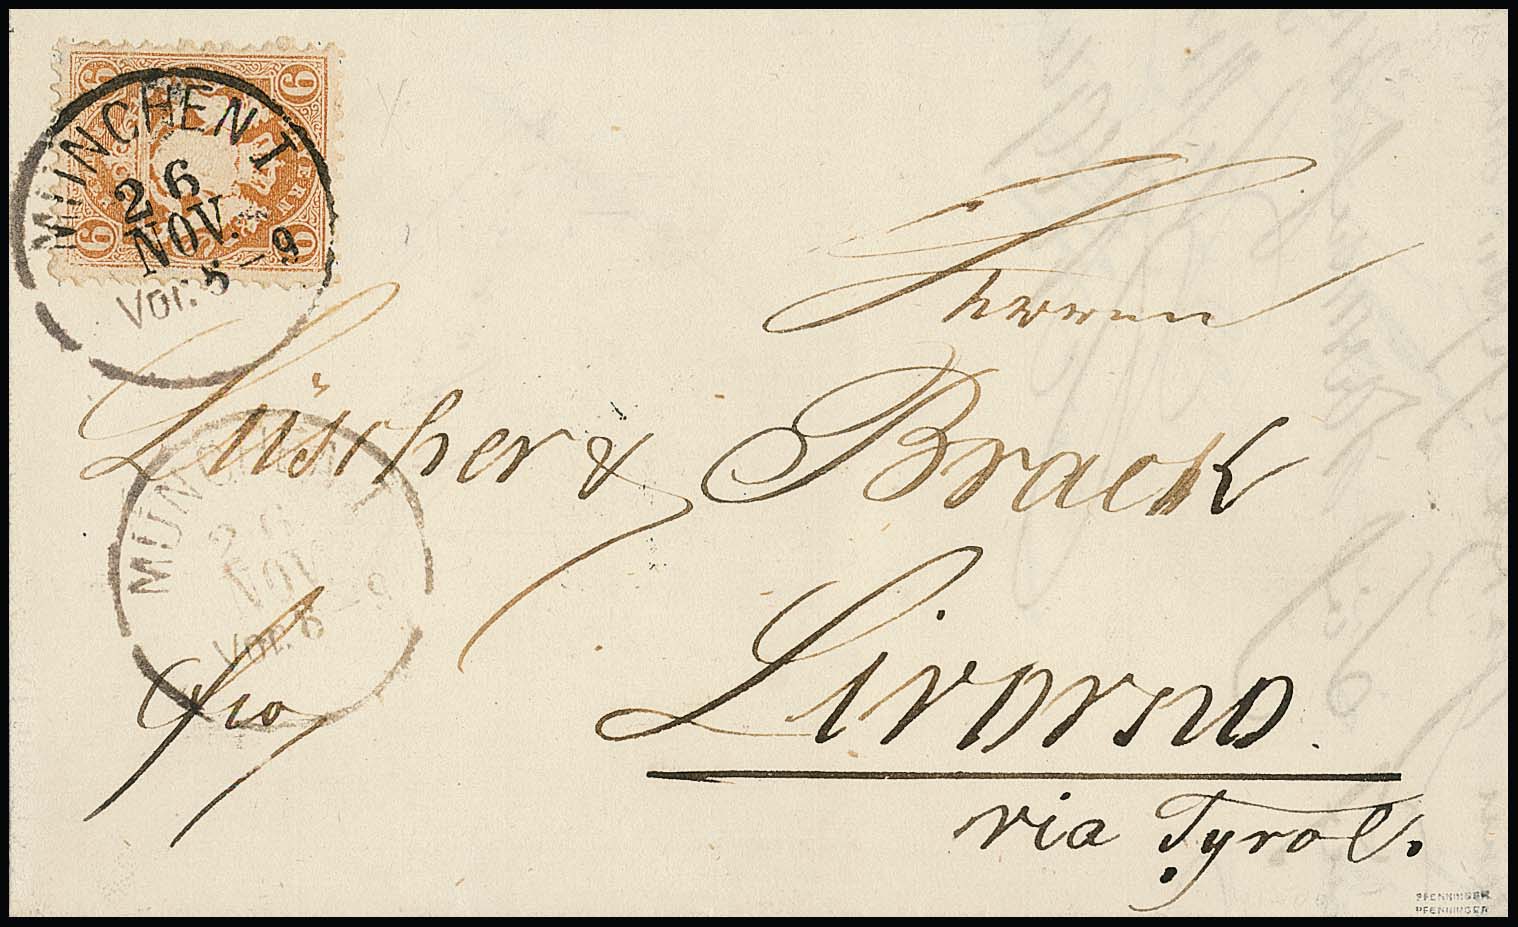 6 6
6 6
MÜNCHEN I
26
NOV.
Vor. 8-9
Herren
Lüscher & Brack
MÜNCHEN I
26
NOV.
Vor. 8-9
fco
Livorno
via Tyrol.
PFENNINGER
PFENNINGER